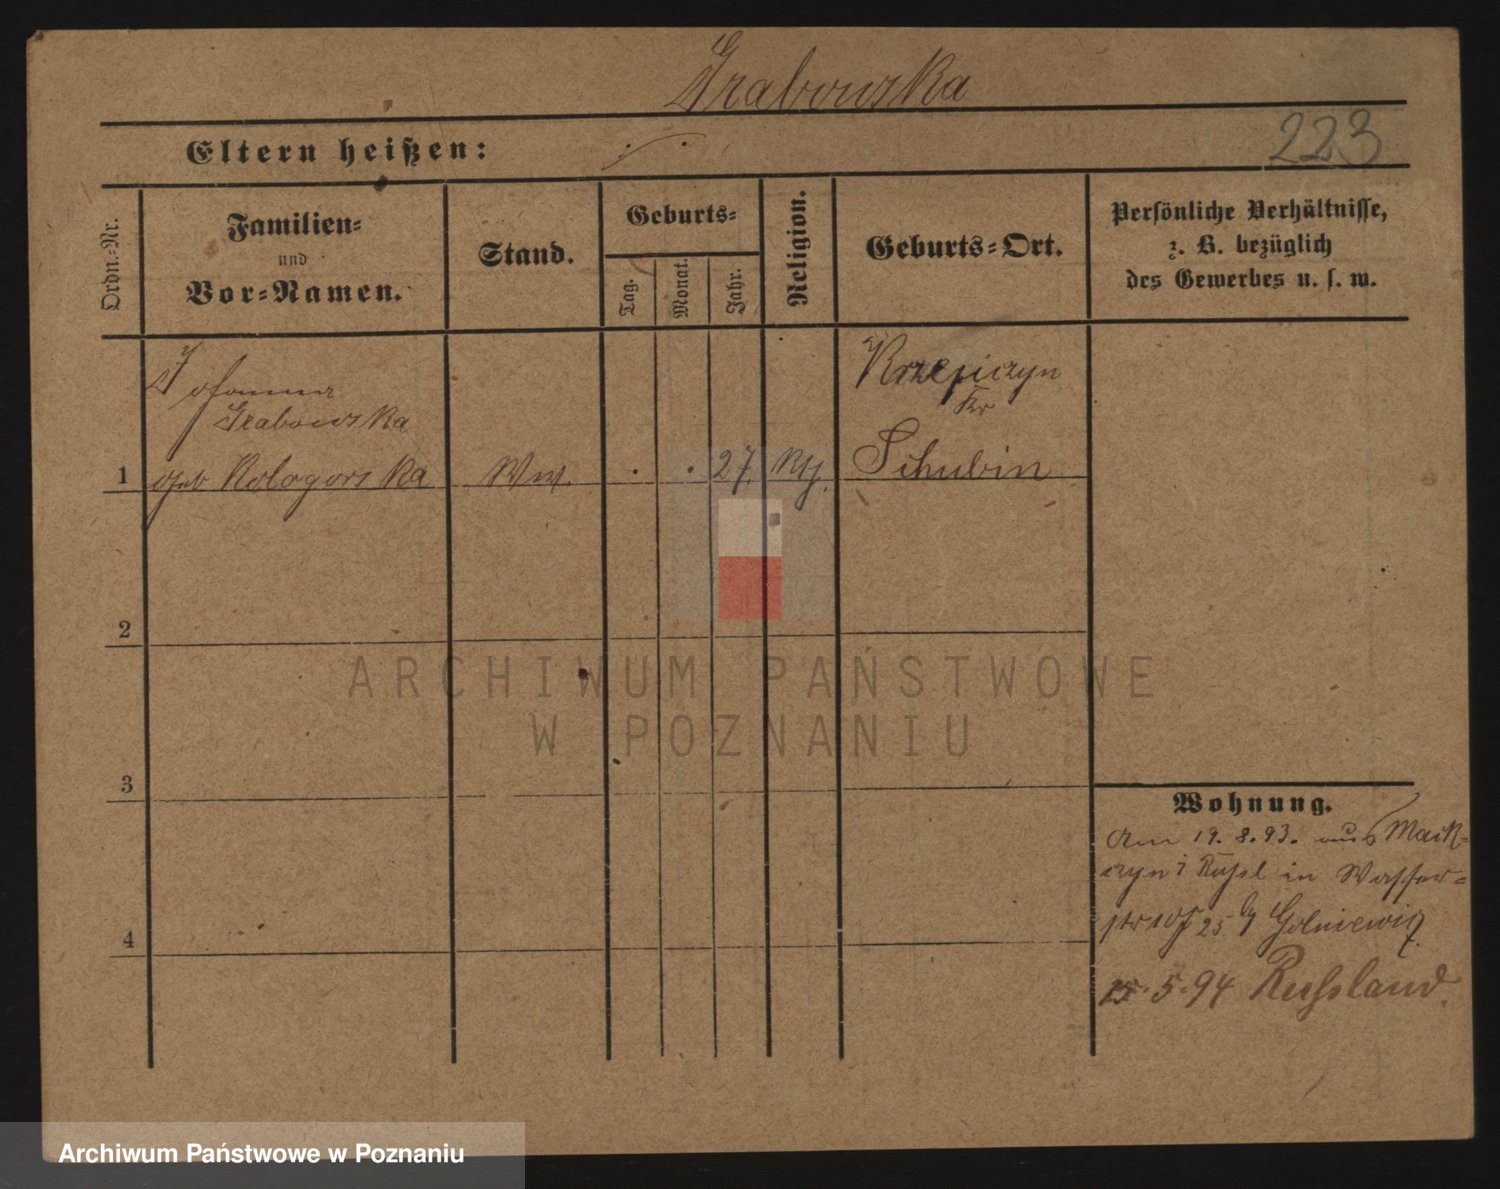 Grabowska
Eltern heißen:
223
Ordn.-Nr.
Familien-
und
Vor-Namen.
Stand.
Geburts-
Tag.
Monat.
Jahr.
Religion.
Geburts-Ort.
Persönliche Verhältnisse,
z. B. bezüglich
des Gewerbes u. s. w.
Johanna
Grabowska
1 geb Kologorska
Ww.
27.
Kth.
Krzepiczyn
Kr
Schubin
2
3
4
ARCHIWUM PAŃSTWOWE
W POZNANIU
Wohnung.
Am 19.8.93. aus
in Wasser-
str 25 Golniewicz
15.5.94 Russland.
Archiwum Państwowe w Poznaniu